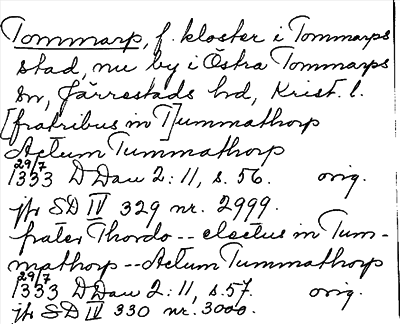 Tommarp, f. kloster i Tommarps
stad, nu by i Östra Tommarps
sn, Järrestads hd, Krist. l.
[fratribus in T]ummathorp
Actum Tummathorp
29/7
1333 DDan 2:11, s. 56. orig.
jfr SD IV 329 nr. 2999.
frater Thordo -- electus in Tum-
mathorp -- Actum Tummathorp
29/7
1333 DDan 2:11, s. 57. orig.
jfr SD IV 330 nr. 3000.